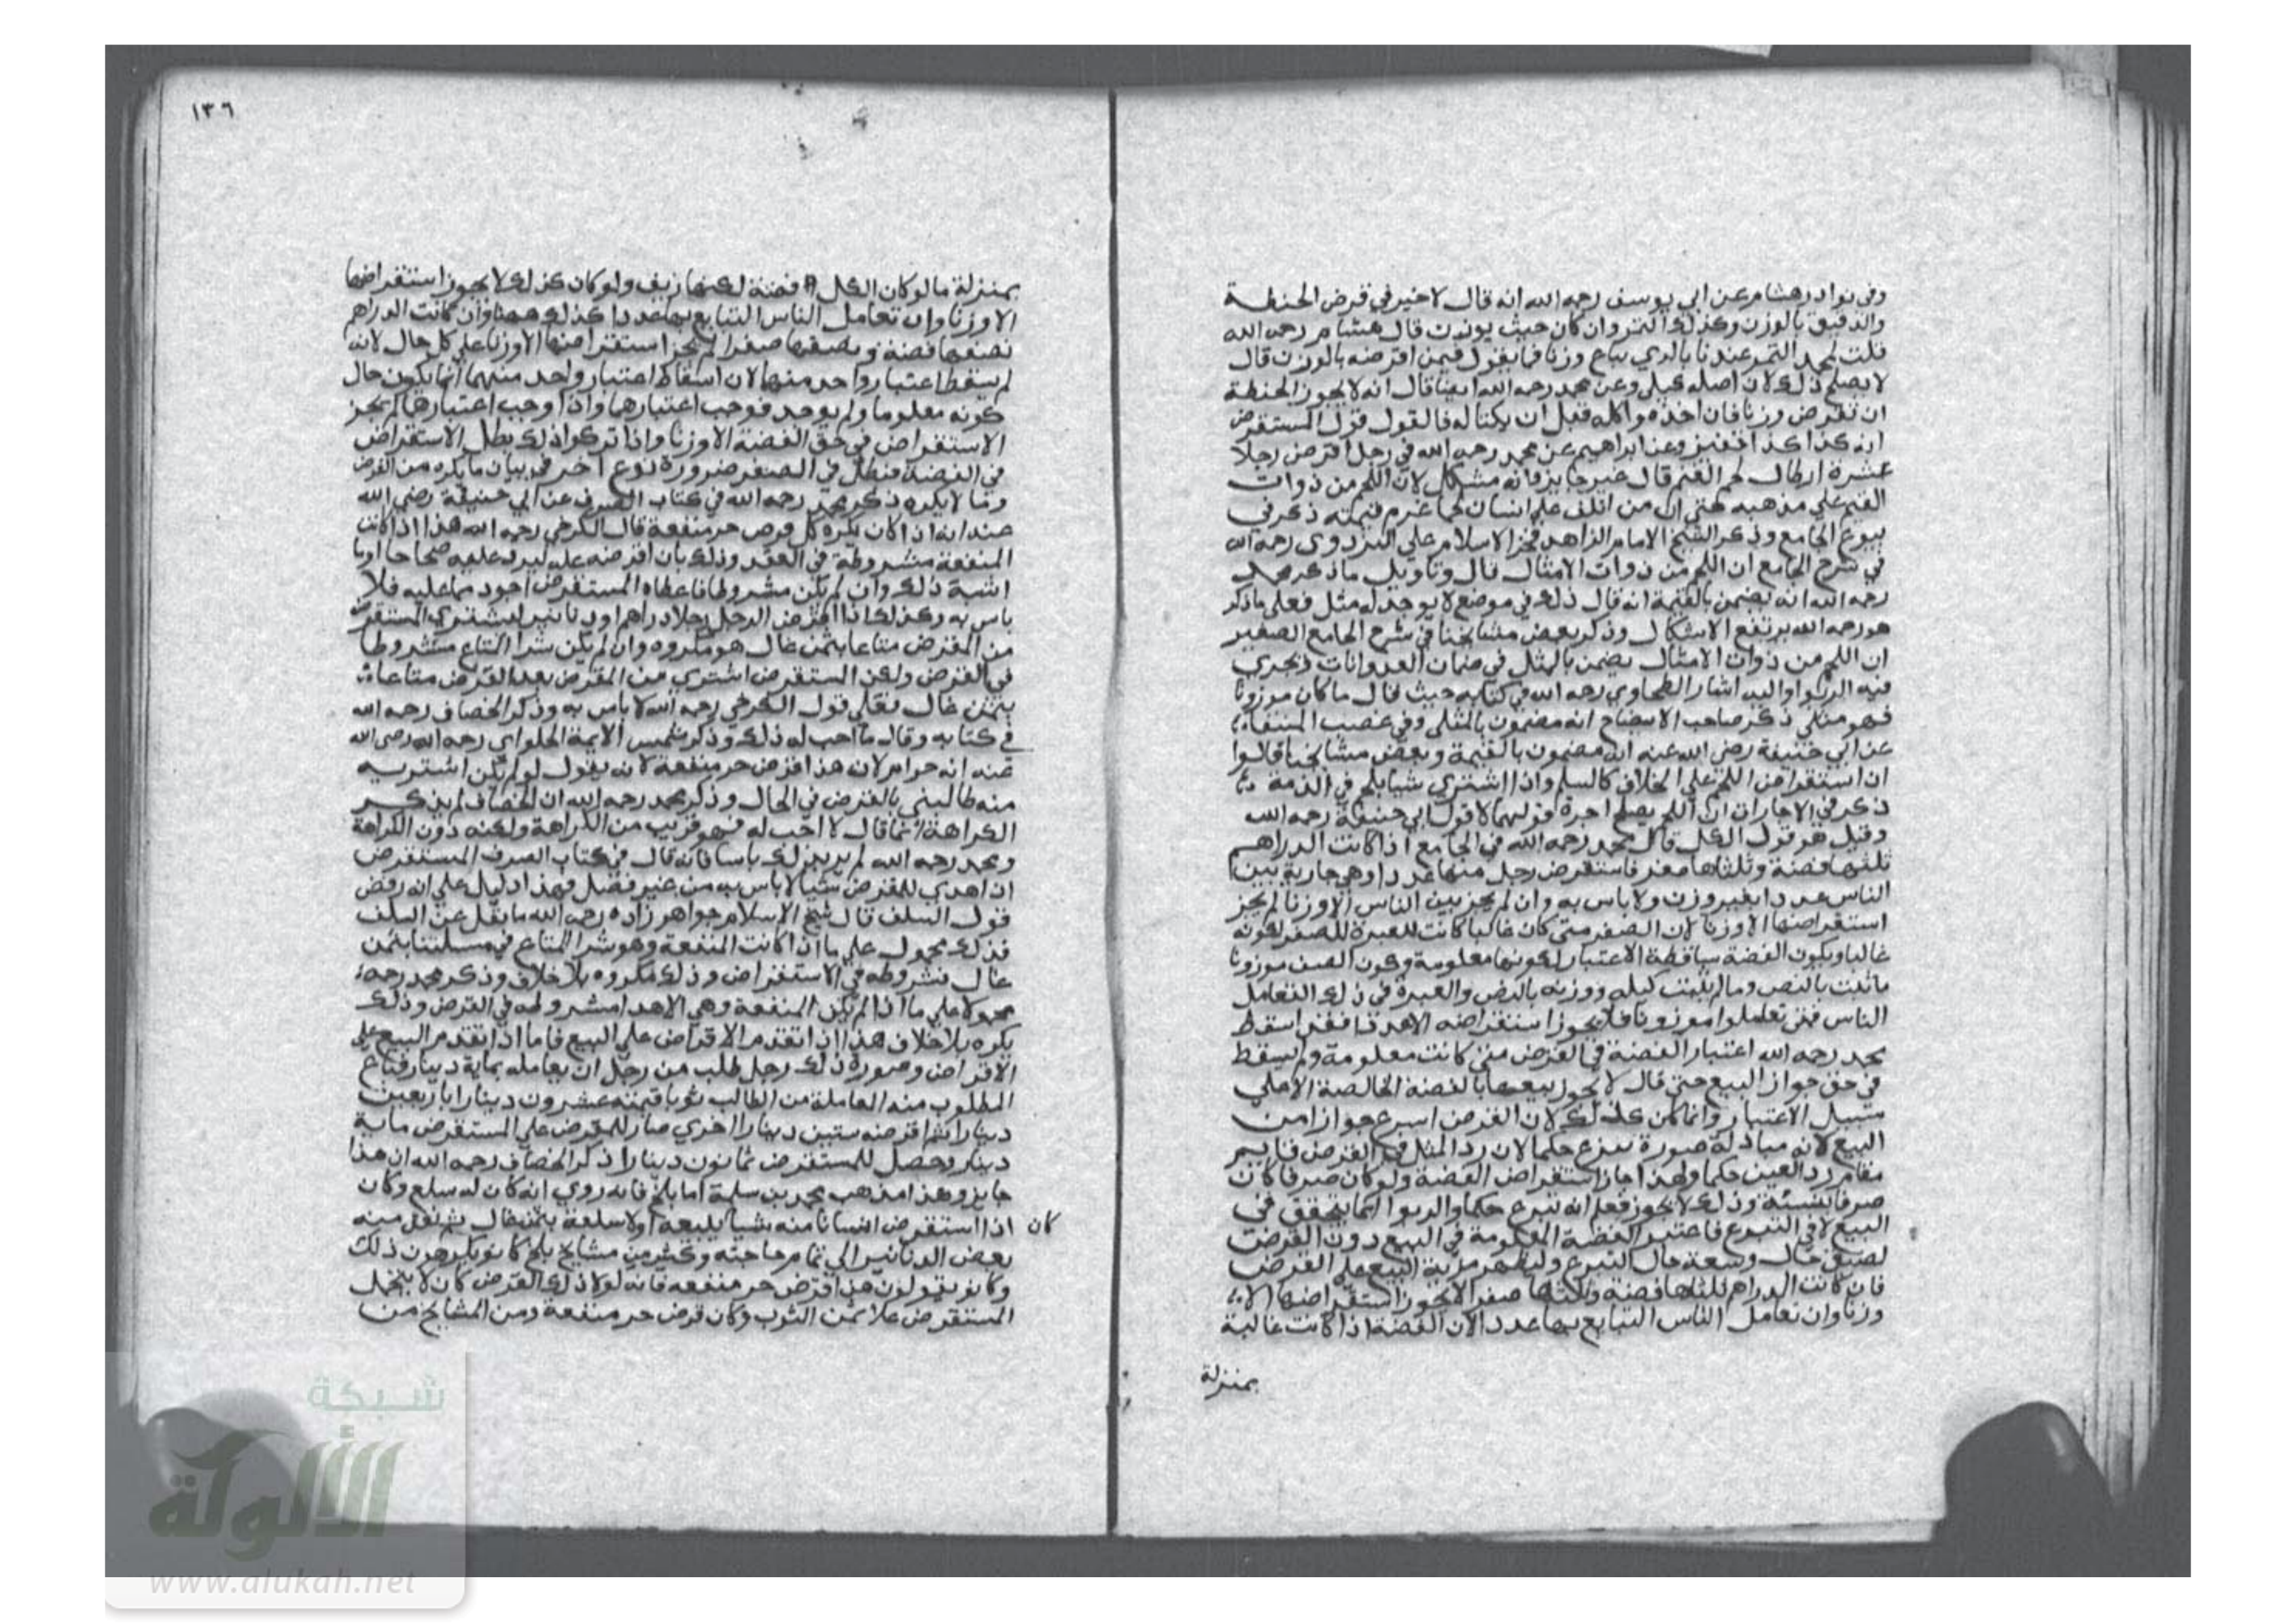 وفي نوادر هشام عن ابي يوسف رحمه الله انه قال لا خير في قرض الحنطة
والدقيق بالوزن وكذلك التمر وان كان حيث يوزن قال هشام رحمه الله
قلت لمحمد التمر عندنا بالري يباع وزنا فما يقول فيمن اقرضه بالوزن قال
لا يصلح ذلك لان اصله كيلي وعن محمد رحمه الله ايضا قال انه لا يجوز الحنطة
ان تقرض وزنا فان اخذه واكله قبل ان يكتاله فالقول قول المستقرض
انه كذا كذا قفيز وعن ابراهيم عن محمد رحمه الله في رجل اقرض رجلا
عشرة ارطال لحم الغنم قال غير جايز وانه مشكل لان اللحم من ذوات
القيم علي مذهبه حتي ان من اتلف علي انسان لحما غرم قيمته ذكر في
بيوع الجامع وذكر الشيخ الامام الزاهد فخر الاسلام علي البزدوي رحمه الله
في شرح الجامع ان اللحم من ذوات الامثال قال وتاويل ما ذكر محمد
رحمه الله انه يضمن بالقيمة انه قال ذلك في موضع لا يوجد له مثل فعلي ما ذكر
هو رحمه الله يرتفع الاشكال وذكر بعض مشايخنا في شرح الجامع الصغير
ان اللحم من ذوات الامثال يضمن بالمثل في ضمان العدوانات ويجري
فيه الربوا واليه اشار الطحاوي رحمه الله في كتابه حيث قال ما كان موزونا
فهو مثلي ذكر صاحب الايضاح انه مضمون بالمثل وفي غصب المنتقاء
عن ابي حنيفة رضي الله عنه انه مضمون بالقيمة وبعض مشايخنا قالوا
ان استقراض اللحم علي الخلاف كالسلم واذا اشتري شيا بلحم في الذمة
ذكر في الاجارات ان اللحم يصلح اجرة قولهما لا قول ابي حنيفة رحمه الله
وقيل هو قول الكل قال محمد رحمه الله في الجامع اذا كانت الدراهم
ثلثها فضة وثلثاها صفر فاستقرض رجل منها عددا وهي جارية بين
الناس عددا بغير وزن ولا باس به وان لم يجز بين الناس الا وزنا لم يجز
استقراضها الا وزنا لان الصفر متي كان غالبا كانت العبرة للصفر لكونه
غالبا ويكون الفضة ساقطة الاعتبار لكونها معلومة وكون الصفر موزونا
ما ثبت بالنص وما لم يثبت كيله ووزنه بالنص والعبرة في ذلك التعامل
الناس فمتي تعاملوا موزونا فلا يجوز استقراضه الا فقد اسقط
محمد رحمه الله اعتبار الفضة في القرض متي كانت معلومة ولم يسقط
في حق جواز البيع حتي قال لا يجوز بيعها بالفضة الخالصة الا علي
سبيل الاعتبار وانما كان كذلك لان القرض اسرع جوازا من
البيع لانه مبادلة صورة تبرع حكما لان رد المثل في القرض قايم
مقام رد العين حكما ولهذا جاز استقراض الفضة ولو كان صرفا كان
صرفا بنسئة وذلك لا يجوز فعلم انه تبرع حكما والربوا انما يتحقق في
البيع لا في التبرع فاعتبر الفضة المعلومة في البيع دون القرض
لضيق حال وسعة حال التبرع وليظهر مزية البيع علي القرض
فان كانت الدراهم ثلثاها فضة وثلثها صفرا لا يجوز استقراضها الا
وزنا وان تعامل الناس التبايع بها عددا لان الفضة اذا كانت غالبة
بمنزلة
١٣٦
بمنزلة ما لو كان الكل فضة لكنها زيف ولو كان كذلك لا يجوز استقراضها
الا وزنا وان تعامل الناس التبايع بها عددا كذلك ههنا وان كانت الدراهم
نصفها فضة ونصفها صفرا لم يجز استقراضها الا وزنا علي كل حال لانه
لم يسقط اعتبار واحد منها لان اسقاط اعتبار واحد منهما انما يكون حال
كونه معلوما ولم يوجد فوجب اعتبارهما واذا وجب اعتبارهما لم يجز
الاستقراض في حق الفضة الا وزنا واذا تركوا ذلك بطل الاستقراض
في الفضة فبطل في الصفر ضرورة نوع اخر في بيان ما يكره من القرض
وما لا يكره ذكر محمد رحمه الله في كتاب الصرف عن ابي حنيفة رضي الله
عنه انه اذا كان يكره كل قرض جر منفعة قال الكرخي رحمه الله هذا اذا كانت
المنفعة مشروطة في العقد وذلك بان اقرضه غلة ليرد عليه صحاحا او ما
اشبه ذلك وان لم يكن مشروطا فاعطاه المستقرض اجود مما عليه فلا
باس به وكذلك اذا اقرض الرجل رجلا دراهم او دنانير ليشتري المستقرض
من المقرض متاعا بثمن غال هو مكروه وان لم يكن شرا المتاع مشروطا
في القرض ولكن المستقرض اشتري من المقرض بعد القرض متاعا
بثمن غال فعلي قول الكرخي رحمه الله لا باس به وذكر الخصاف رحمه الله
في كتابه وقال ما احب له ذلك وذكر شمس الايمة الحلواني رحمه الله رضي الله
عنه انه حرام لان هذا قرض جر منفعة لانه يقول لو لم يكن اشتريه
منه طالبني بالقرض في الحال وذكر محمد رحمه الله ان الخصاف لم يذكر
الكراهة انما قال لا احب له فهو قريب من الكراهة ولكنه دون الكراهة
ومحمد رحمه الله لم ير بذلك باسا فانه قال في كتاب الصرف المستقرض
اذا اهدي للمقرض شيا لا باس به من غير فصل فهذا دليل علي انه رفض
قول السلف قال شيخ الاسلام جواهر زاده رحمه الله ما نقل عن السلف
فذلك محمول علي ما اذا كانت المنفعة وهو شرا المتاع في مسئلتنا بثمن
غال مشروطه في الاستقراض وذلك مكروه بلا خلاف وذكر محمد رحمه
محمولا علي ما اذا لم يكن المنفعة وهي الاهدا مشروطه في القرض وذلك
يكره بلا خلاف هذا اذا تقدم الاقراض علي البيع فاما اذا تقدم البيع علي
الاقراض وصورة ذلك رجل طلب من رجل ان يعامله بماية دينار فباع
المطلوب منه المعاملة من الطالب ثوبا قيمته عشرون دينارا باربعين
دينارا ثم اقرضه ستين دينارا اخري صار للمقرض علي المستقرض ماية
دينار وحصل للمستقرض ثمانون دينارا ذكر الخصاف رحمه الله ان هذا
جايز وهذا مذهب محمد بن سلمة امام بلخ فانه روي انه كان له سلع وكان
كان اذا استقرض انسانا منه شيا يبيعه اولا سلعة بثمن غال ثم يقرض منه
بعض الدنانير الي تمام حاجته وكثير من مشايخ بلخ كانو يكرهون ذلك
وكانو يقولون هذا قرض جر منفعه فانه لولا ذلك القرض كان لا يتحمل
المستقرض غلا ثمن الثوب وكان قرض جر منفعة ومن المشايخ من
شبكة
الألوكة
www.alukah.net